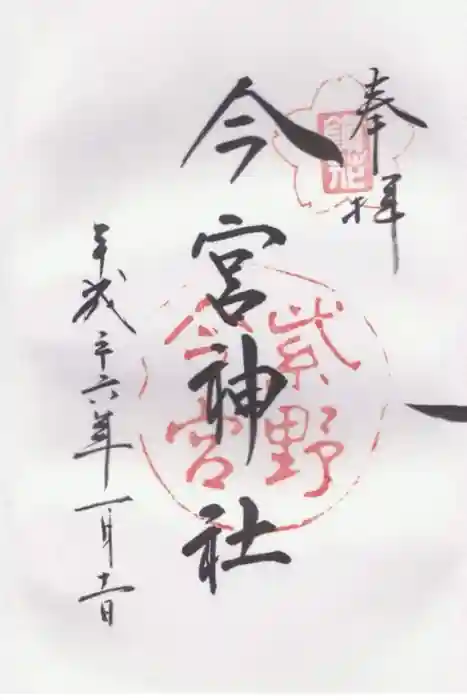 奉拝
今宮神社
紫野
今宮
平成二十六年一月十一日